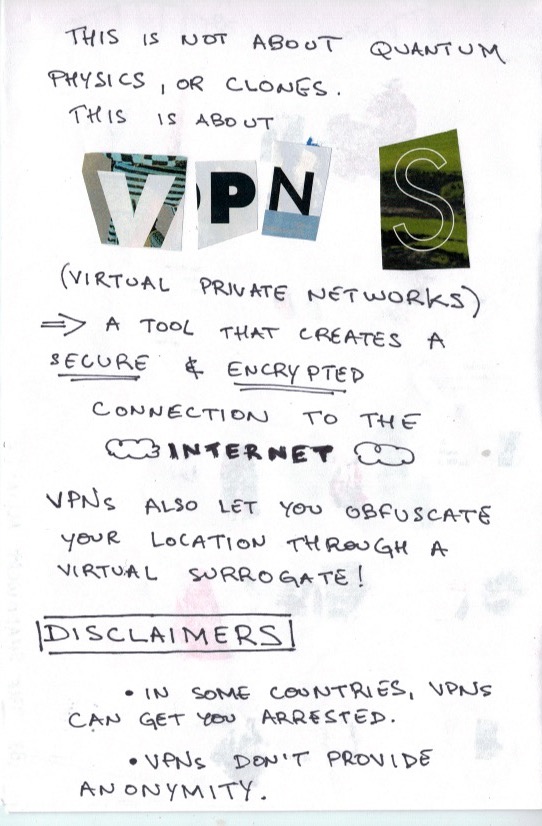 THIS IS NOT ABOUT QUANTUM
PHYSICS, OR CLONES.
THIS IS ABOUT
VPN S
(VIRTUAL PRIVATE NETWORKS)
⇒ A TOOL THAT CREATES A
SECURE & ENCRYPTED
CONNECTION TO THE
INTERNET
VPNs ALSO LET YOU OBFUSCATE
YOUR LOCATION THROUGH A
VIRTUAL SURROGATE!
DISCLAIMERS
• IN SOME COUNTRIES, VPNs
CAN GET YOU ARRESTED.
• VPNs DON'T PROVIDE
ANONYMITY.